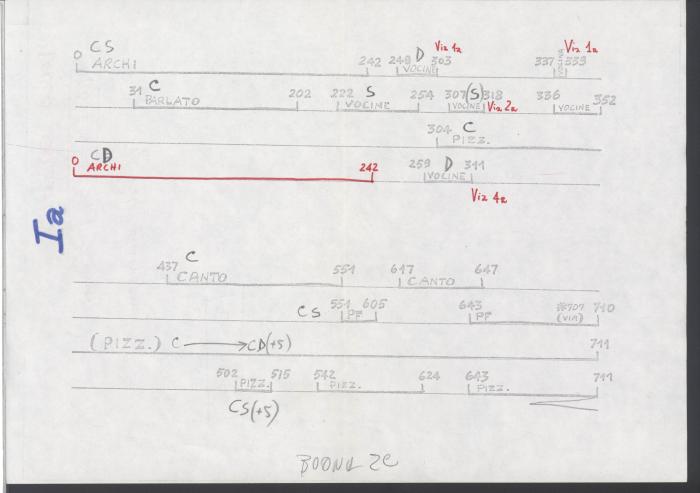 CS D Via 1a Via 1a
0 242 248 303 337 339
ARCHI VOCINE VOCINE
C S (S)
31 202 222 254 307 318 336 352
PARLATO VOCINE VOCINE Via 2a VOCINE
304 C
PIZZ.
0 CD 242 259 D 311
ARCHI VOCINE
Via 4a
Ia
437 C 551 617 647
CANTO CANTO
CS 551 605 643 707 710
PF PF (VIA)
(PIZZ.) C → CD(+5) 711
502 515 542 624 643 711
PIZZ. PIZZ. PIZZ.
CS(+5)
BOONA 2C